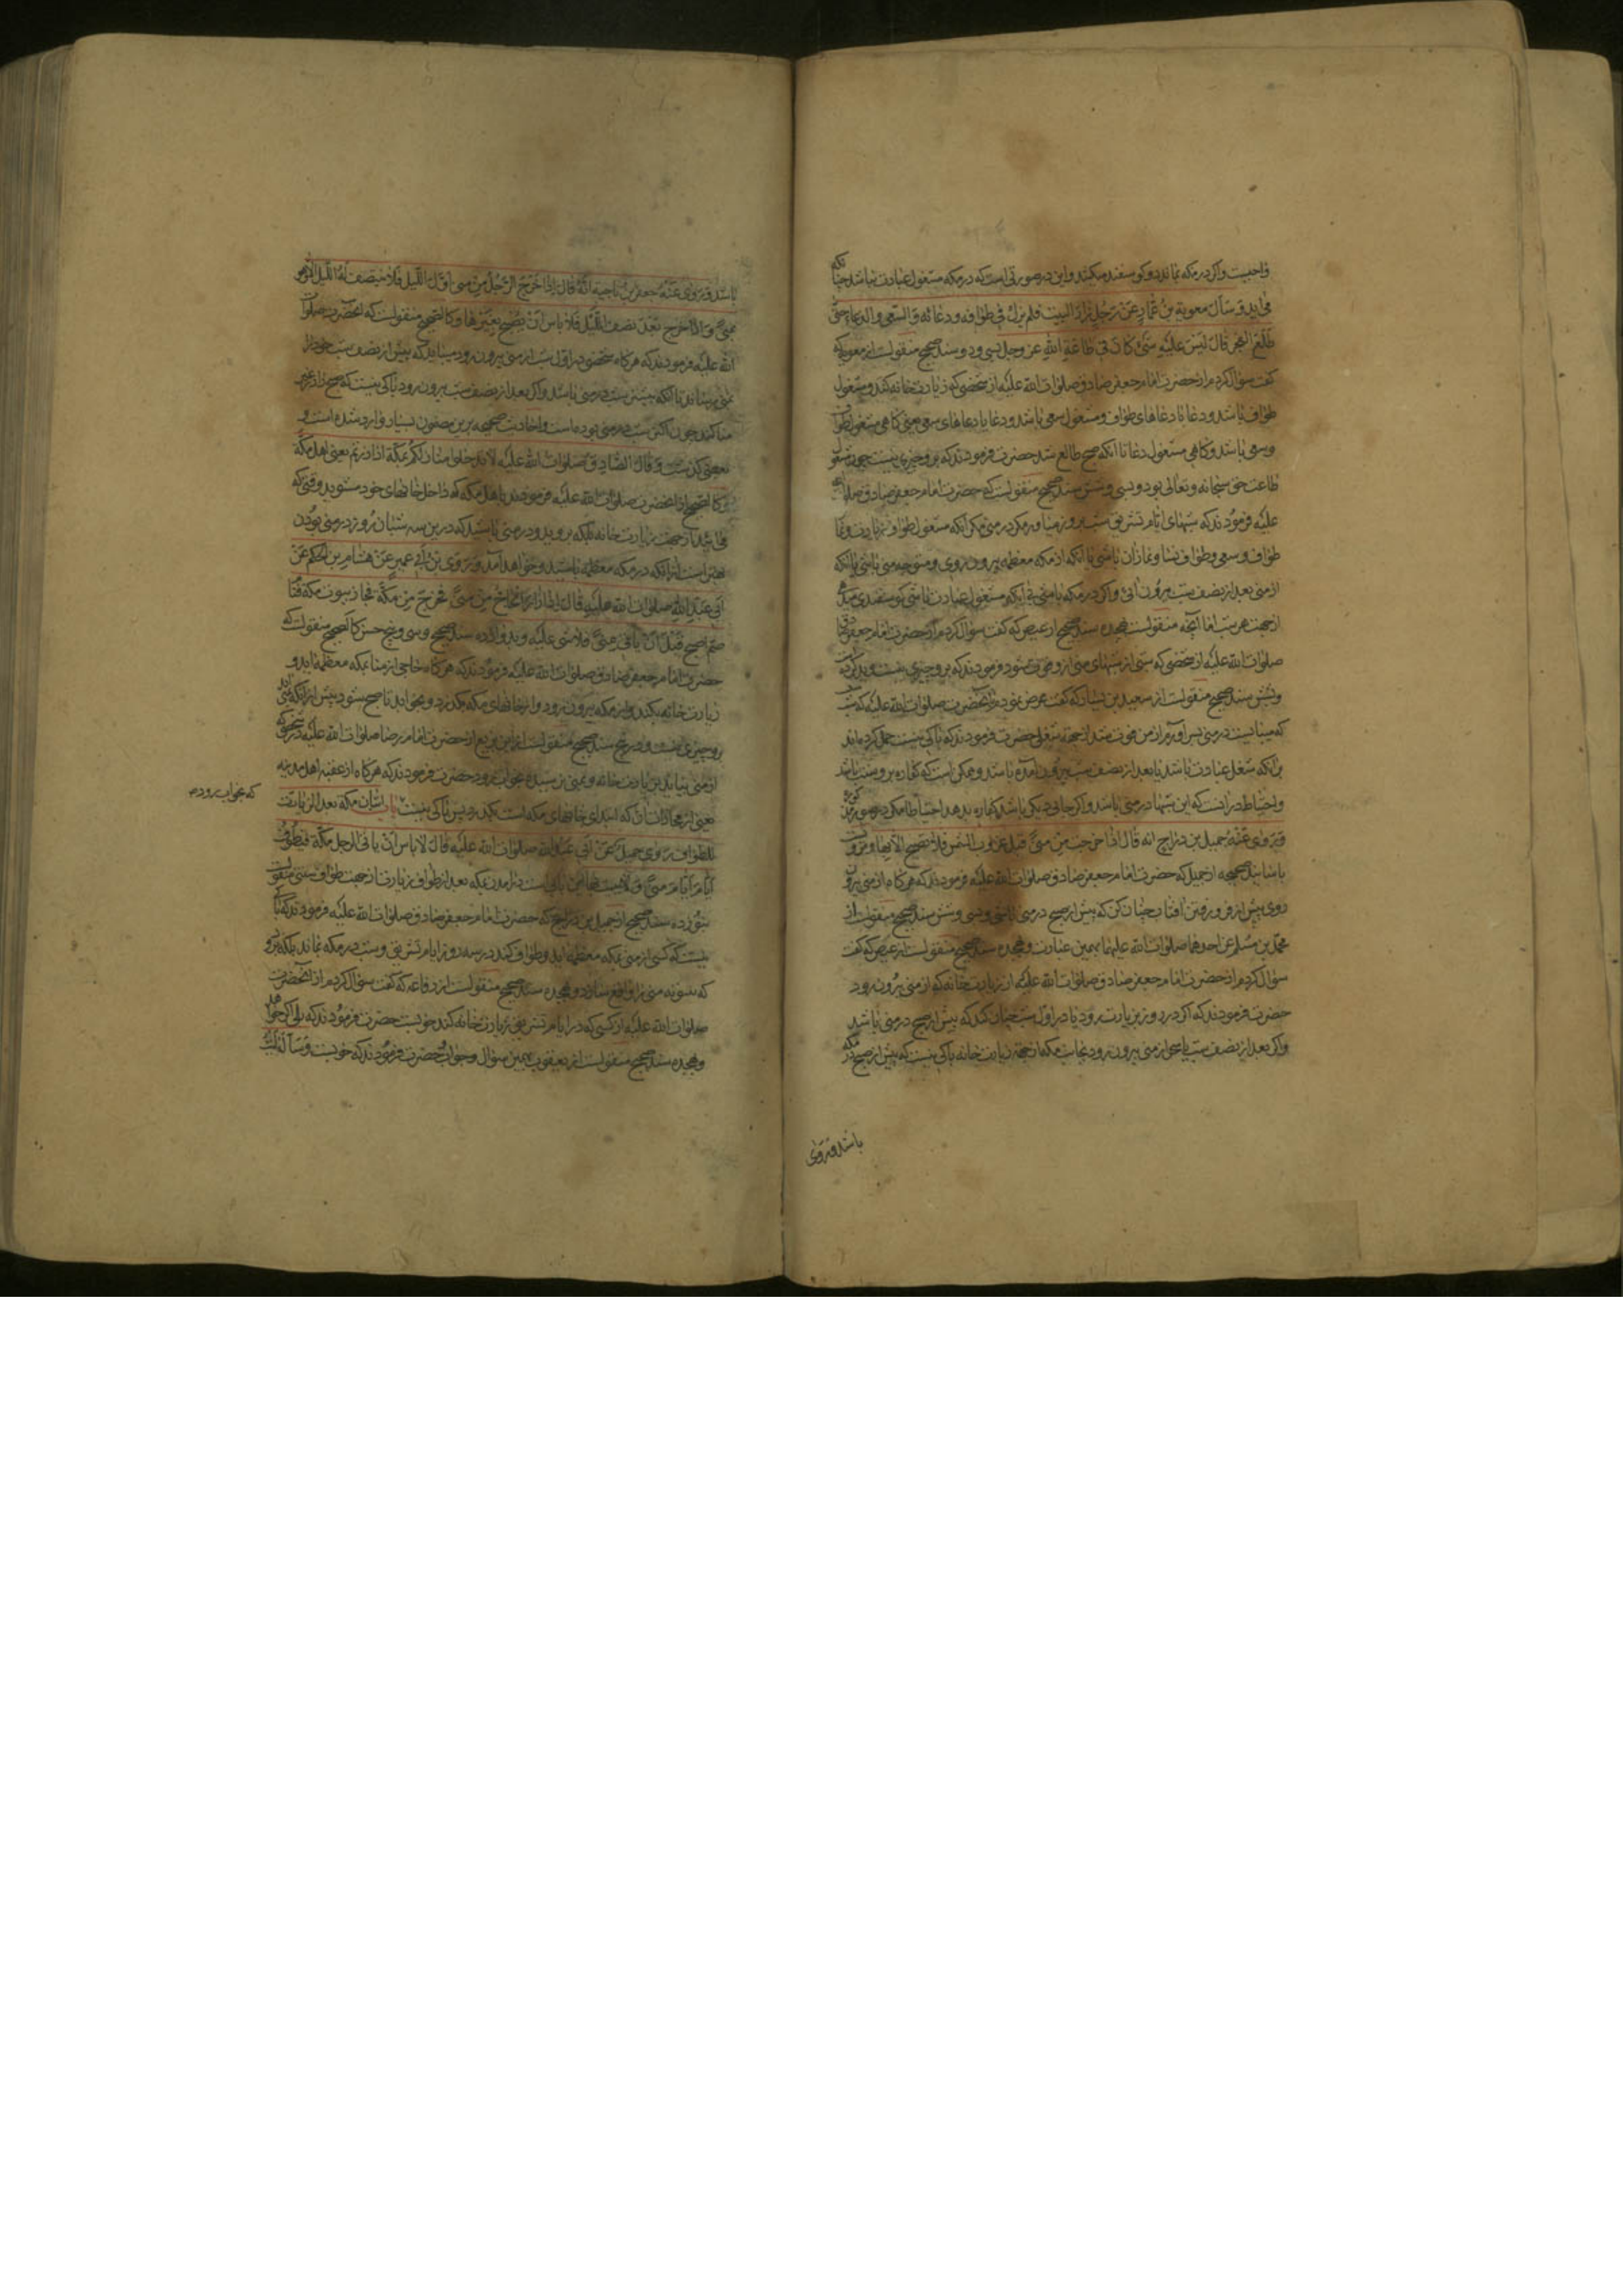 واجبست و اکر در مکه نماند دو کوسفند میکشد و این در صورتی است که در مکه مشغول عبادت نباشد چنانکه
می اید و سأل معویة بن عمار عن رجل زار البیت فلم یزل فی طوافه و دعائه و السعی و الدعاء حتی
طلع الفجر قال لیس علیه شئ کان فی طاعة الله عز و جل بسی و دو سند صحیح منقولست از معویه که
کفت سؤال کردم از حضرت امام جعفر صادق صلوات الله علیه از شخصی که زیارت خانه کند و مشغول
طواف باشد و دعا یا دعاهای طواف و مشغول سعی باشد و دعا یا دعاهای سعی یعنی کاهی مشغول طواف
و سعی باشد و کاهی مشغول دعا تا انکه صبح طالع شد حضرت فرمودند که برو چیزی نیست چون مشغول
طاعت حق سبحانه و تعالی بود و بسی و شش سند صحیح منقولست که حضرت امام جعفر صادق صلوات الله
علیه فرمودند که شبهای ایام تشریق شب بروز میاور مکر در منی مکر انکه مشغول طواف زیارت و نماز
طواف و سعی و طواف نسا و نماز ان باشی یا انکه از مکه معظمه بیرون روی و متوجه منی باشی یا انکه
از منی بعد از نصف شب بیرون ائی و اکر در مکه باشی بی انکه مشغول عبادت باشی کوسفندی میدهی
از جهت هر شب اما آنچه منقولست بهجده سند صحیح از عیص که کفت سؤال کردم از حضرت امام جعفر صادق
صلوات الله علیه از شخصی که شبی از شبهای منی ازو فوت شود فرمودند که برو چیزی نیست و بد کرده است
و بشش سند صحیح منقولست از سعید بن یسار که کفت عرض نمودم بانحضرت صلوات الله علیه که شب
که میبایست در منی بسر آورم از من فوت شد از جهة شغلی حضرت فرمودند که باکی نیست حمل کرده اند
بر انکه شغل عبادت باشد یا بعد از نصف شب بیرون آمده باشد و ممکن است که کفاره برو سنت باشد
و احتیاط در انست که این شبها در منی باشد و اکر جای دیکر باشد کفاره بدهد احتیاطا مکر در صور مذکوره
و روی عنه جمیل بن دراج انه قال اذا خرجت من منی قبل غروب الشمس فلا تصبح الا بها و مرویست
باسانید صحیحه از جمیل که حضرت امام جعفر صادق صلوات الله علیه فرمودند که هر کاه از منی بیرون
روی پیش از فرو رفتن افتاب چنان کن که پیش از صبح در منی باشی و بسی و شش سند صحیح منقولست از
محمد بن مسلم عن احدهما صلوات الله علیهما بهمین عبارت و بهجده سند صحیح منقولست از عیص که کفت
سؤال کردم از حضرت امام جعفر صادق صلوات الله علیه از زیارت خانه که از منی بیرون رود
حضرت فرمودند که اکر در روز بزیارت رود یا در اول شب چنان کند که پیش از صبح در منی باشد
و اکر بعد از نصف شب یا سحر از منی بیرون رود بجانب مکه از جهة زیارت خانه باکی نیست که پیش از صبح در مکه
باشد و روی
باشد و روی عنه جعفر بن ناجیة انه قال اذا خرج الرجل من منی اول اللیل فلا ینتصف له اللیل الا و هو
بمنی و اذا خرج بعد نصف اللیل فلا باس ان یصبح بغیرها و کالصحیح منقولست که انحضرت صلوات
الله علیه فرمودند که هر کاه شخصی در اول شب از منی بیرون رود میباید که پیش از نصف شب خود را
بمنی برساند تا انکه بیشتر شب در منی باشد و اکر بعد از نصف شب بیرون رود باکی نیست که صبح را در غیر
منا کند چون اکثر شب در منی بوده است و احادیث صحیحه برین مضمون بسیار وارد شده است و
بعضی کذشت و قال الصادق صلوات الله علیه لا تدخلوا منازلکم بمکة اذا زرتم یعنی اهل مکة
و کالصحیح از انحضرت صلوات الله علیه فرمودند باهل مکه که داخل خانهای خود مشوید وقتی که
می ائید از جهت زیارت خانه بلکه بروید و در منی باشید که درین سه شبان روز در منی بودن
بهتر است از انکه در مکه معظمه باشید و خواهد آمد و روی بن ابی عمیر عن هشام بن الحکم عن
ابی عبد الله صلوات الله علیه قال اذا زار الحاج من منی فخرج من مکة فجاز بیوت مکة فنام
ثم اصبح قبل ان یاتی منی فلا شی علیه و بدوازده سند صحیح و سی و پنج حسن کالصحیح منقولست که
حضرت امام جعفر صادق صلوات الله علیه فرمودند که هر کاه حاجی از منا بمکه معظمه اید و
زیارت خانه بکند و از مکه بیرون رود و از خانهای مکه بکذرد و بخوابد تا صبح شود پیش از انکه بمنی اید
برو چیزی نیست و در پنج سند صحیح منقولست از ابن بزیع از حضرت امام رضا صلوات الله علیه در شخصی که
از منی بیاید بزیارت خانه و بمنی نرسیده بخواب رود حضرت فرمودند که هر کاه از عقبه اهل مدینه
یعنی از محاذات ان که ابتدای خانهای مکه است بکذرد پس باکی نیست باب اتیان مکة بعد الزیارة
للطواف روی جمیل عن ابی عبد الله صلوات الله علیه قال لا باس ان یاتی الرجل مکة فیطوف
ایام منی و لا یبیت بها این بابی است در امدن بمکه بعد از طواف زیارت از جهت طواف سنتی منقولست
بنوزده سند صحیح از جمیل بن دراج که حضرت امام جعفر صادق صلوات الله علیه فرمودند که باکی
نیست که کسی از منی بمکه معظمه اید و طواف کند در سه روز ایام تشریق و شب در مکه نماند بلکه برود
که بیتوته منی را واقع سازد و بهجده سند صحیح منقولست از رفاعه که کفت سؤال کردم از انحضرت
صلوات الله علیه از کسی که در ایام تشریق زیارت خانه کند خوبست حضرت فرمودند که بلی اکر خواهد
و بهجده سند صحیح منقولست از یعقوب بهمین سؤال و جواب حضرت فرمودند که خوبست و سأله لیث
که بخواب رود م